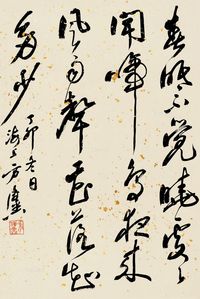 春眠不觉晓处处
闻啼鸟夜来
风雨声花落知
多少
丁卯冬日
海上方